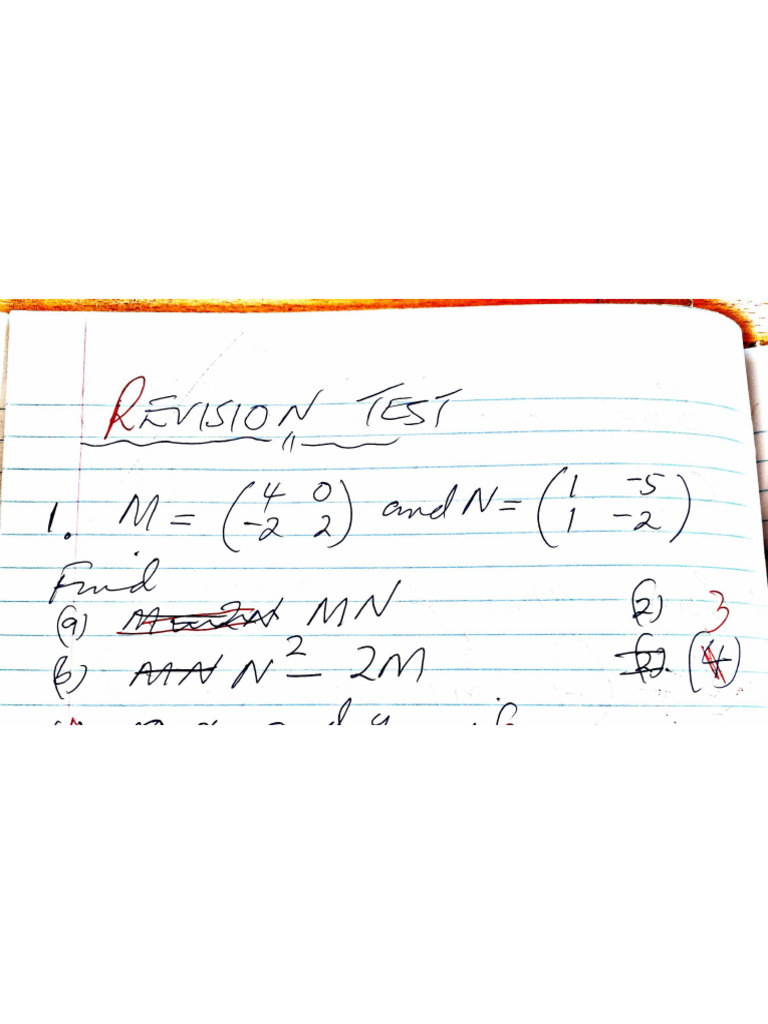 REVISION TEST
1. M = (4 0 -2 2) and N = (1 -5 1 -2)
Find
(a) MN (2) 3
(b) MN N² - 2M (4)